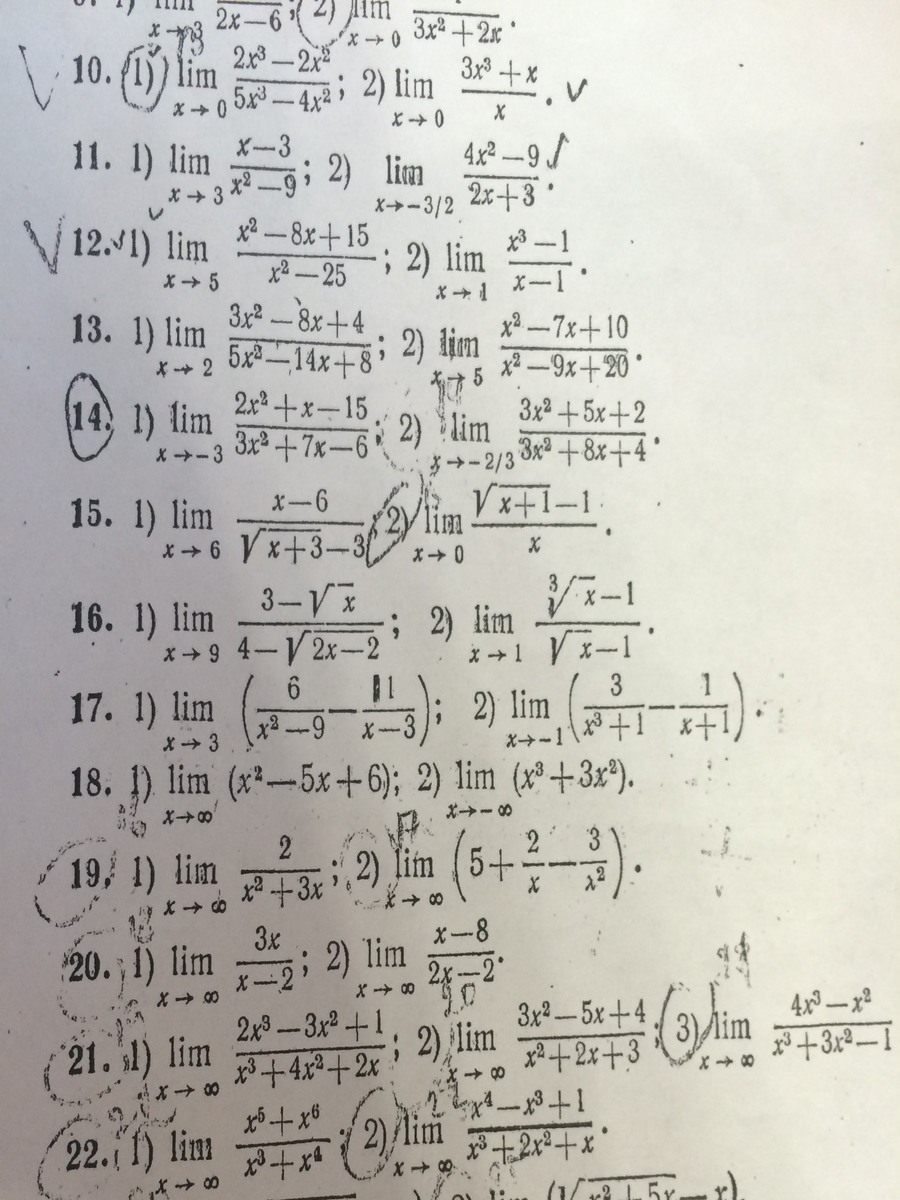 1) lim x→3 2x−6; 2) lim x→0 3x² + 2x.
10. 1) lim x→0 (2x³ − 2x²)/(5x³ − 4x²); 2) lim x→0 (3x³ + x)/x.
11. 1) lim x→3 (x−3)/(x² − 9); 2) lim x→−3/2 (4x² − 9)/(2x+3).
12. 1) lim x→5 (x² − 8x + 15)/(x² − 25); 2) lim x→1 (x³ − 1)/(x−1).
13. 1) lim x→2 (3x² − 8x + 4)/(5x² − 14x + 8); 2) lim x→5 (x² − 7x + 10)/(x² − 9x + 20).
14. 1) lim x→−3 (2x² + x − 15)/(3x² + 7x − 6); 2) lim x→−2/3 (3x² + 5x + 2)/(3x² + 8x + 4).
15. 1) lim x→6 (x−6)/(√(x+3) − 3); 2) lim x→0 (√(x+1) − 1)/x.
16. 1) lim x→9 (3 − √x)/(4 − √(2x−2)); 2) lim x→1 (∛x − 1)/(√x − 1).
17. 1) lim x→3 (6/(x² − 9) − 1/(x−3)); 2) lim x→−1 (3/(x³ + 1) − 1/(x+1)).
18. 1) lim x→∞ (x² − 5x + 6); 2) lim x→−∞ (x³ + 3x²).
19. 1) lim x→∞ 2/(x² + 3x); 2) lim x→∞ (5 + 2/x − 3/x²).
20. 1) lim x→∞ 3x/(x−2); 2) lim x→∞ (x−8)/(2x−2).
21. 1) lim x→∞ (2x³ − 3x² + 1)/(x³ + 4x² + 2x); 2) lim x→∞ (3x² − 5x + 4)/(x² + 2x + 3); 3) lim x→∞ (4x³ − x²)/(x³ + 3x² − 1)
22. 1) lim x→∞ (x⁵ + x⁶)/(x³ + x⁴); 2) lim x→∞ (x⁴ − x³ + 1)/(x³ + 2x² + x).
lim (√(x² + 5x) − x).